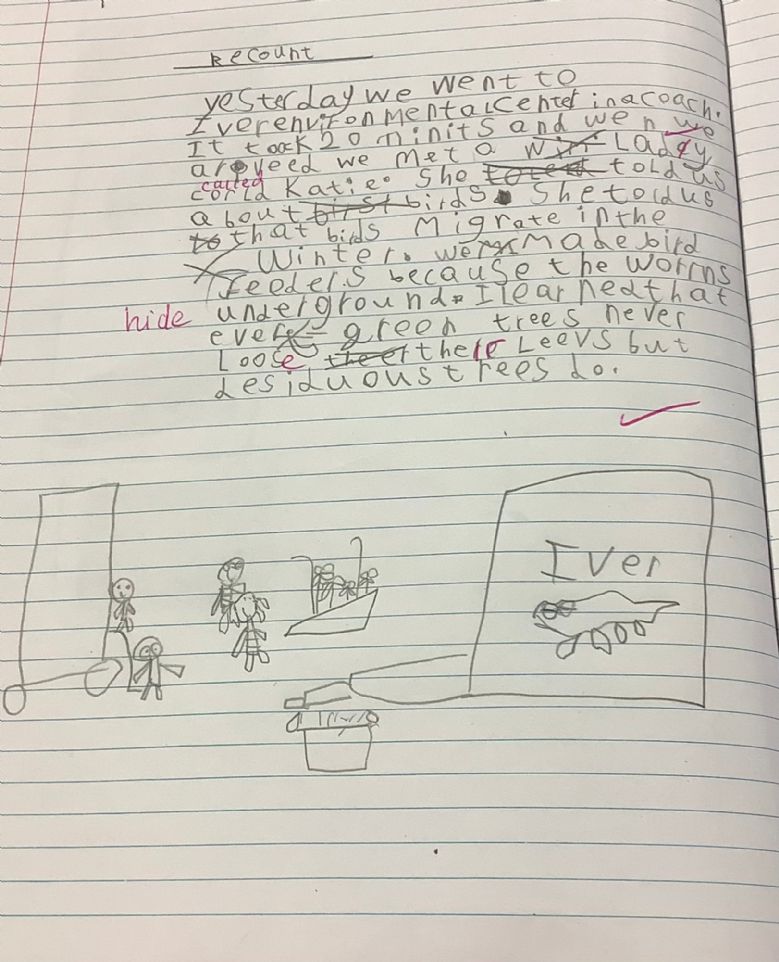 Recount
yesterday we went to
Iver environmental Center in a coach.
It took 20 minits and wen we
aroyeed we met a Laddy
called
corld Katie. She told us
about birds. She told us
that birds Migrate in the
Winter. we made bird
feeders because the worms
hide underground. I learned that
ever green trees never
Loose there Leevs but
desiduous trees do.
Iver